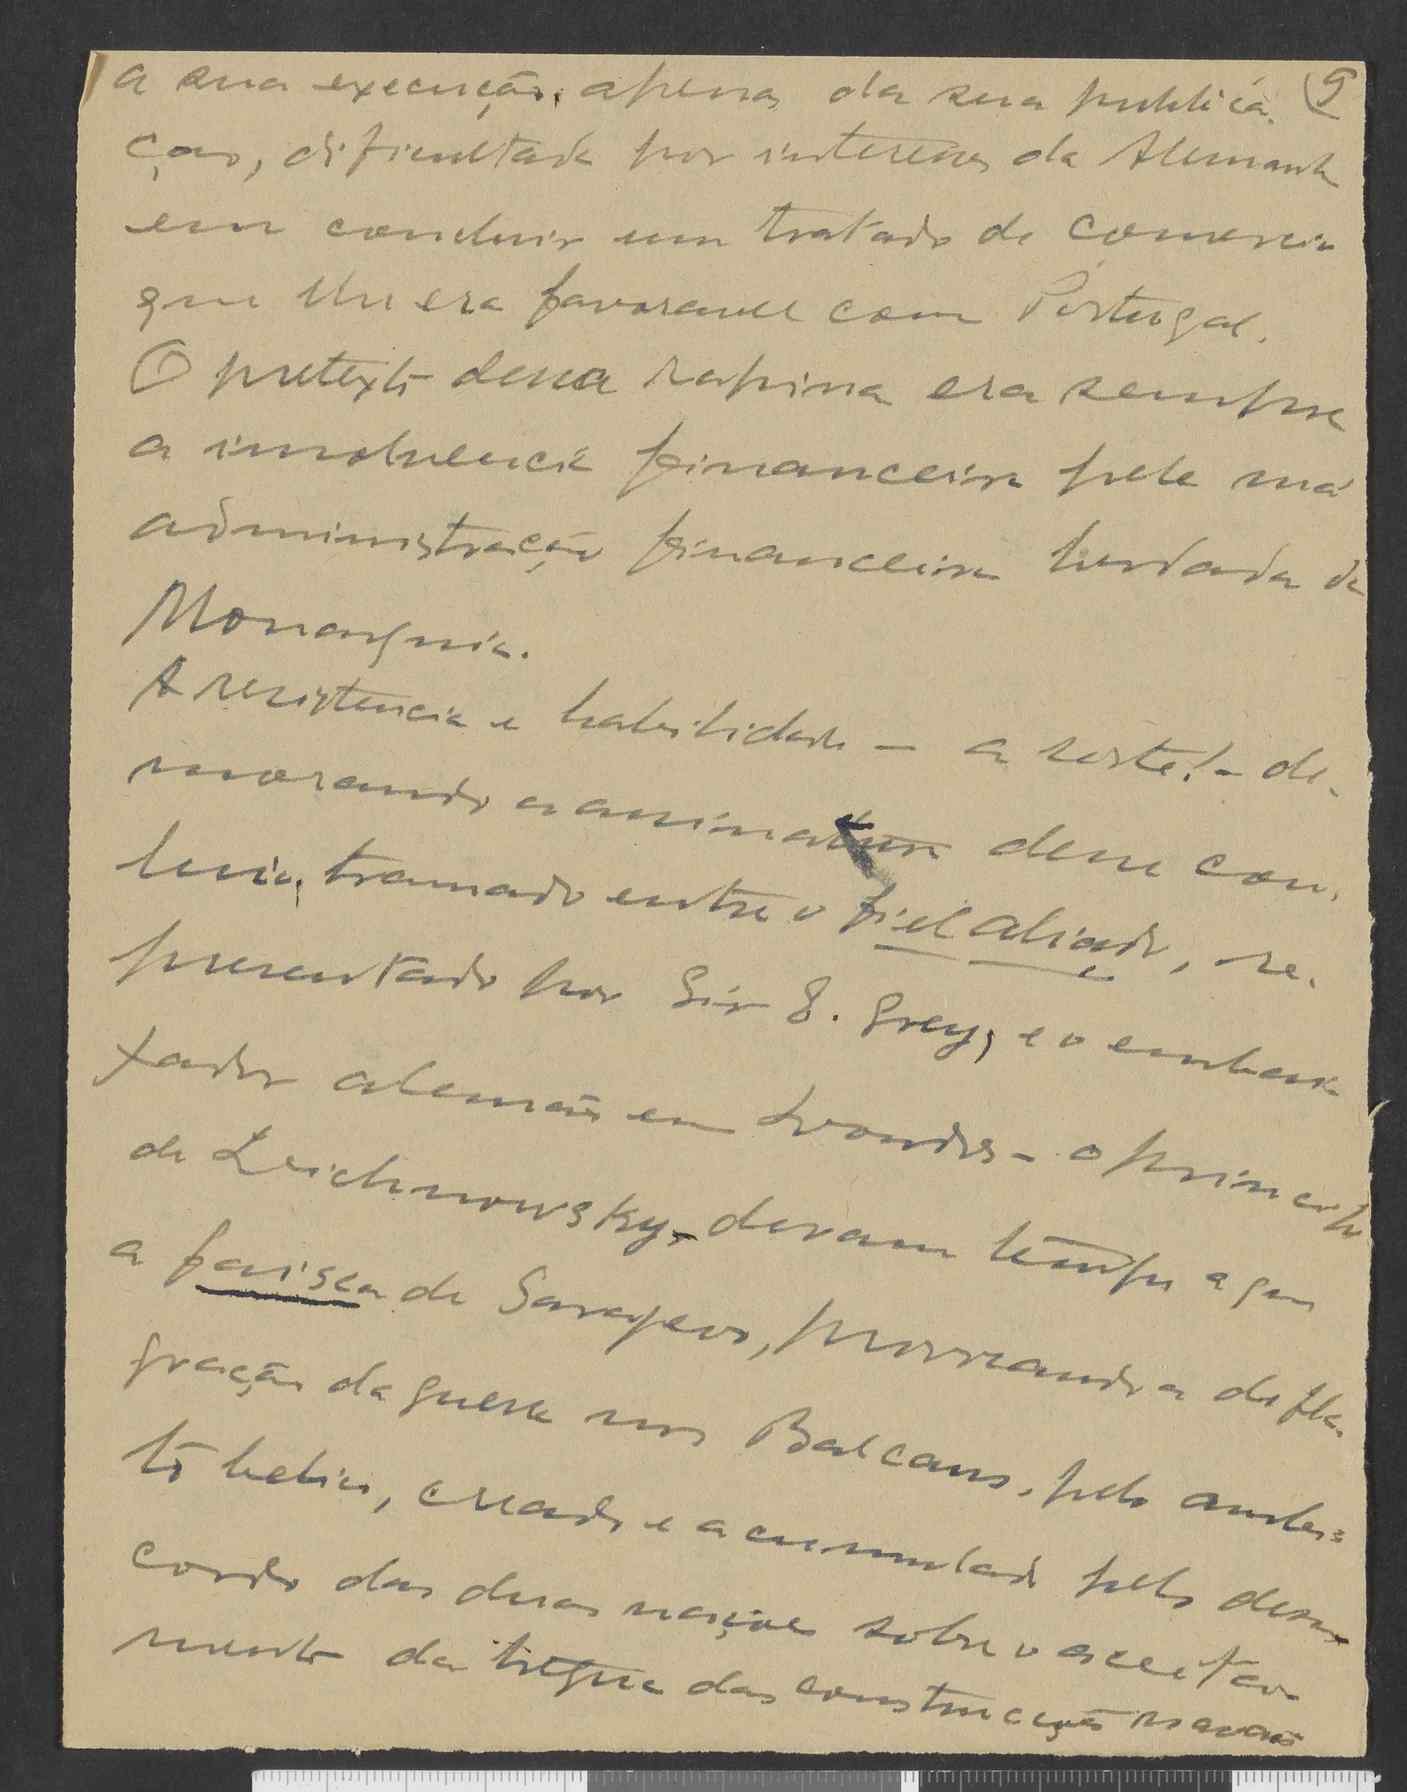 a sua execução, apenas da sua publica- 9
ção, dificultada por interesses da Alemanha
em concluir um tratado de comercio
que lhe era favoravel com Portugal.
O pretexto dessa rapina era sempre
a insolvencia financeira pela má
administração financeira herdada da
Monarquia.
A resistencia e habilidade - a sorte! - de-
morando a assinatura desse con-
luio, tramado entre o fiel aliado, re-
presentado por Sir E. Grey, e o embai-
xador alemão em Londres - o principe
de Leichnowsky, deram tempo a que
a faisca de Sarajevo, provocando a defla-
gração da guerra nos Balcans, pelo ambien-
te belico, creado e acumulado pelo desa-
cordo das duas nações sobre o aceita-
mento da tregua das construcções navais